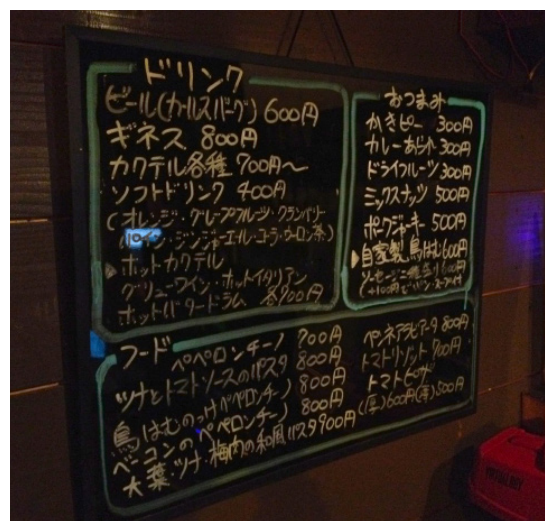 ドリンク
ビール(カールスバーグ) 600円
ギネス 800円
カクテル各種 700円〜
ソフトドリンク 400円
(オレンジ・グレープフルーツ・クランベリー
パイン・ジンジャーエール・コーラ・ウーロン茶)
ホットカクテル
グリューワイン・ホットイタリアン
ホットバタードラム 各700円
おつまみ
かきピー 300円
カレーあられ 300円
ドライフルーツ 300円
ミックスナッツ 500円
ポークジャーキー 500円
自家製鳥はむ 600円
ソーセージ二種盛り 600円
(+100円で
フード
ペペロンチーノ 700円
ツナとトマトソースのパスタ 800円
鳥はむのっけペペロンチーノ 800円
ベーコンのペペロンチーノ 800円
大葉・ツナ・梅肉の和風パスタ 900円
ペンネアラビアータ 800円
トマトリゾット 700円
トマトピザ
(厚)600円(薄)500円